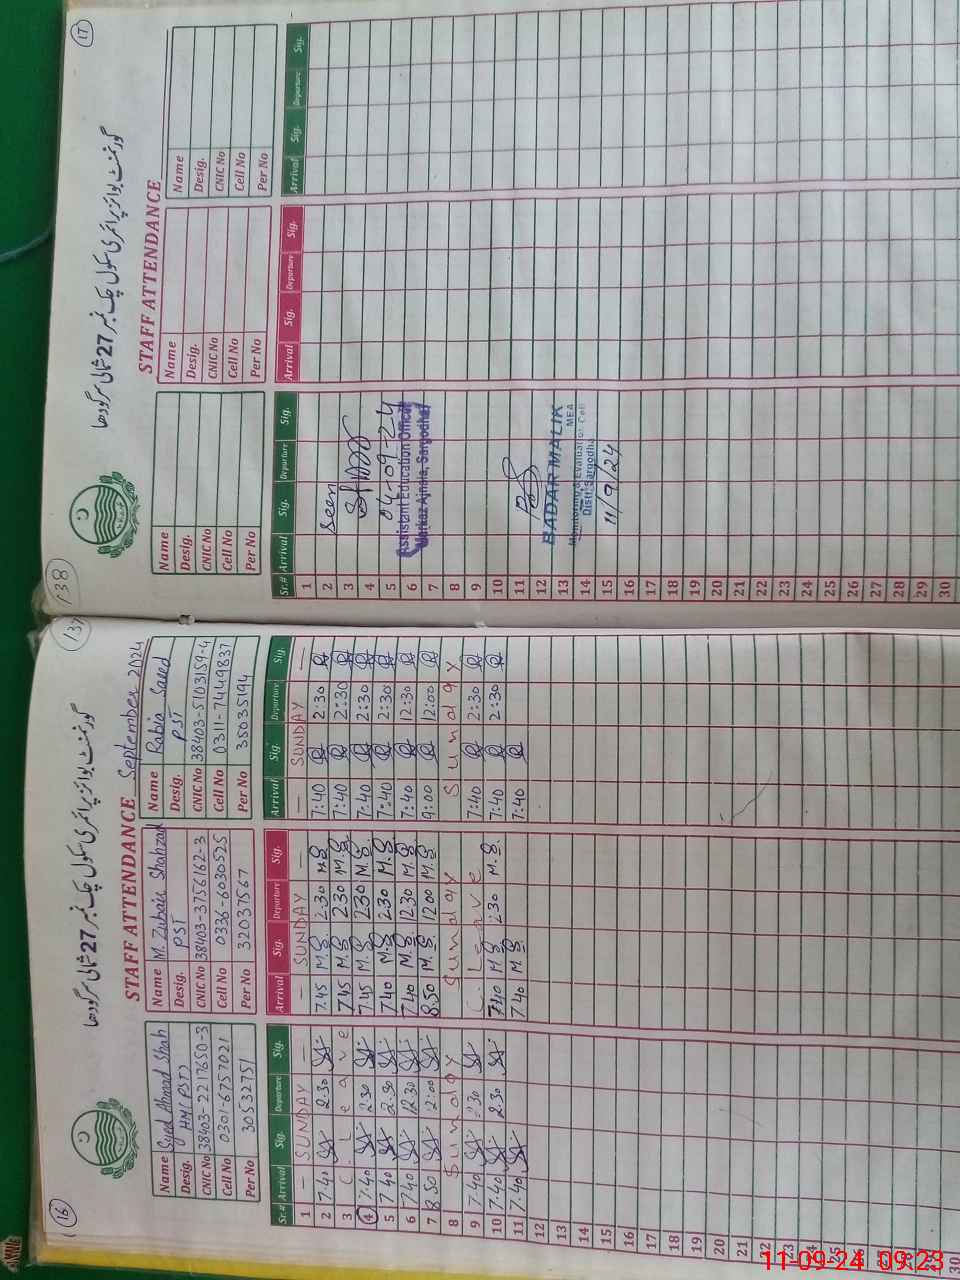 16
137
گورنمنٹ بوائز پرائمری سکول چک نمبر 27 شمالی سرگودھا
STAFF ATTENDANCE September 2024
Name Syed Ahmad Shah
Desig. HM(PST)
CNIC No 38403-2217650-3
Cell No 0301-6757021
Per No 30532751
Name M. Zubair Shahzad
Desig. PST
CNIC No 38403-3756162-3
Cell No 0336-6030525
Per No 32037567
Name Rabia Saeed
Desig. PST
CNIC No 38403-5103159-4
Cell No 0311-7449837
Per No 35035194
Sr.# Arrival Sig. Departure Sig. Arrival Sig. Departure Sig. Arrival Sig. Departure Sig.
1 — SUNDAY — — SUNDAY — — SUNDAY —
2 7.40 2.30 7.45 M.S. 2.30 M.S 7:40 2:30
3 C. Leave 7.45 M.S. 2.30 M.S 7:40 2:30
4 7.40 2.30 7.45 M.S. 2.30 M.S. 7:40 2:30
5 7.40 2.30 7.40 M.S. 2.30 M.S. 7:40 2:30
6 7.40 12.30 7.40 M.S. 12.30 M.S. 7:40 12:30
7 8.50 12:00 8.50 M.S. 12.00 M.S 9:00 12:00
8 Sunday Sunday Sunday
9 7.40 2.30 C. Leave 7:40 2:30
10 7.40 2.30 7.40 M.S. 2.30 M.S. 7:40 2:30
11 7.40 7.40 M.S. 7:40
12
13
14
15
16
17
18
19
20
21
22
23
24
25
30
138
17
گورنمنٹ بوائز پرائمری سکول چک نمبر 27 شمالی سرگودھا
STAFF ATTENDANCE
Name
Desig.
CNIC No
Cell No
Per No
Name
Desig.
CNIC No
Cell No
Per No
Name
Desig.
CNIC No
Cell No
Per No
Sr.# Arrival Sig. Departure Sig. Arrival Sig. Departure Sig. Arrival Sig. Departure Sig.
1
2 Seen
3
4
5 04-09-24
6 Assistant Education Officer
7 Markaz Ajnala, Sargodha
8
9
10
11
12
13 BADAR MALIK
14 Monitoring & Evaluation Cell MEA
Distt: Sargodha
15 11/9/24
16
17
18
19
20
21
22
23
24
25
26
27
28
29
30
11-09-24 09:23